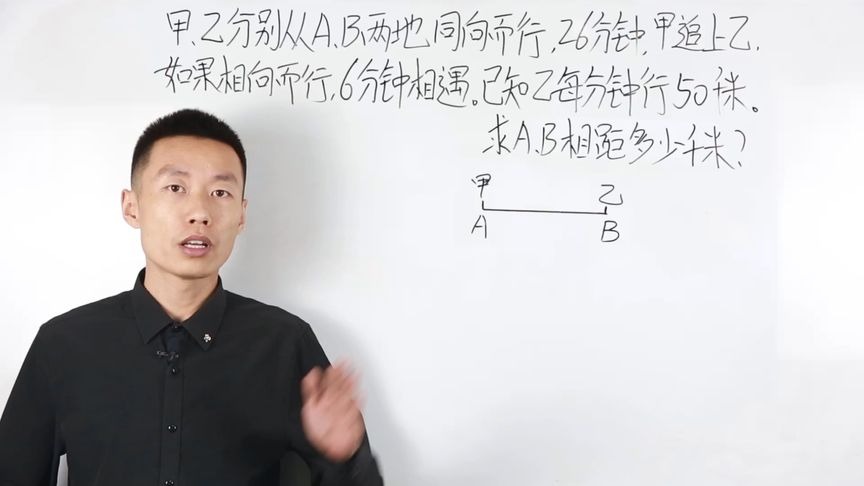 甲、乙分别从A、B两地,同向而行,26分钟,甲追上乙,
如果相向而行,6分钟相遇。已知乙每分钟行50米。
求A、B相距多少千米?
甲 乙
A B